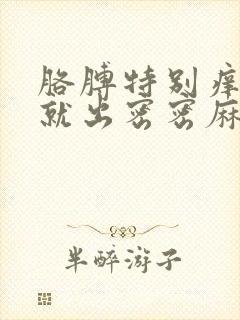 胳膊特别痒
就出密密麻
半醉游子